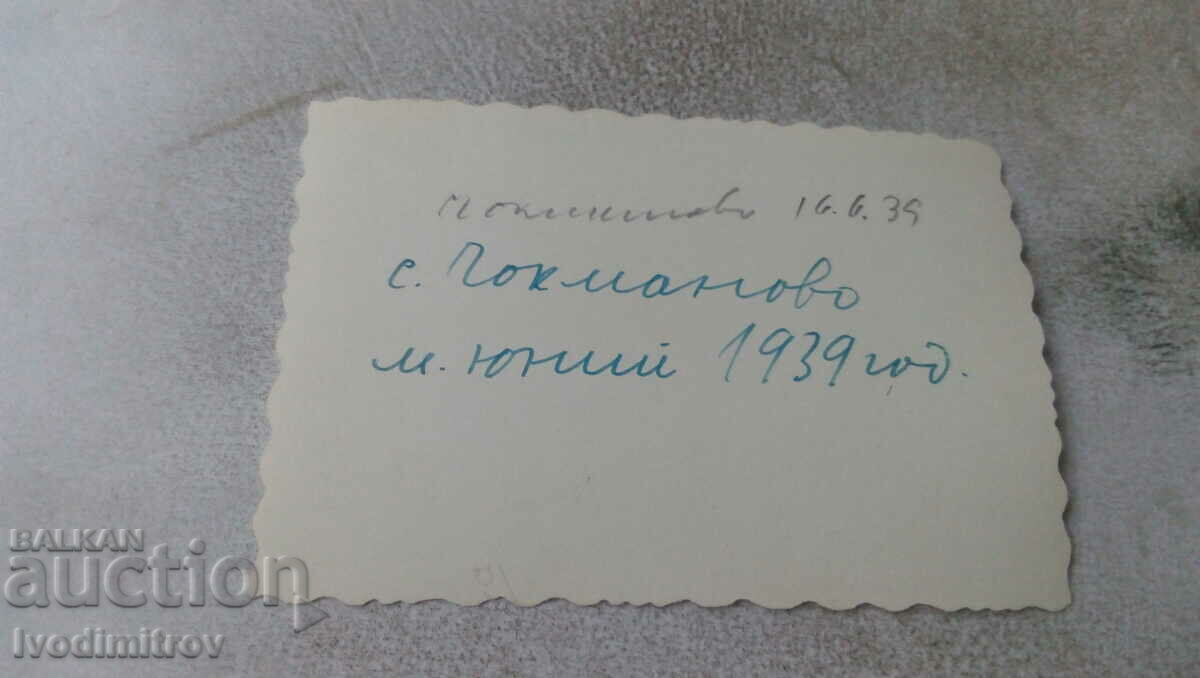 Чокманово 16.6.39
с. Чокманово
м. юний 1939 год.
BALKAN
auction
Ivodimitrov